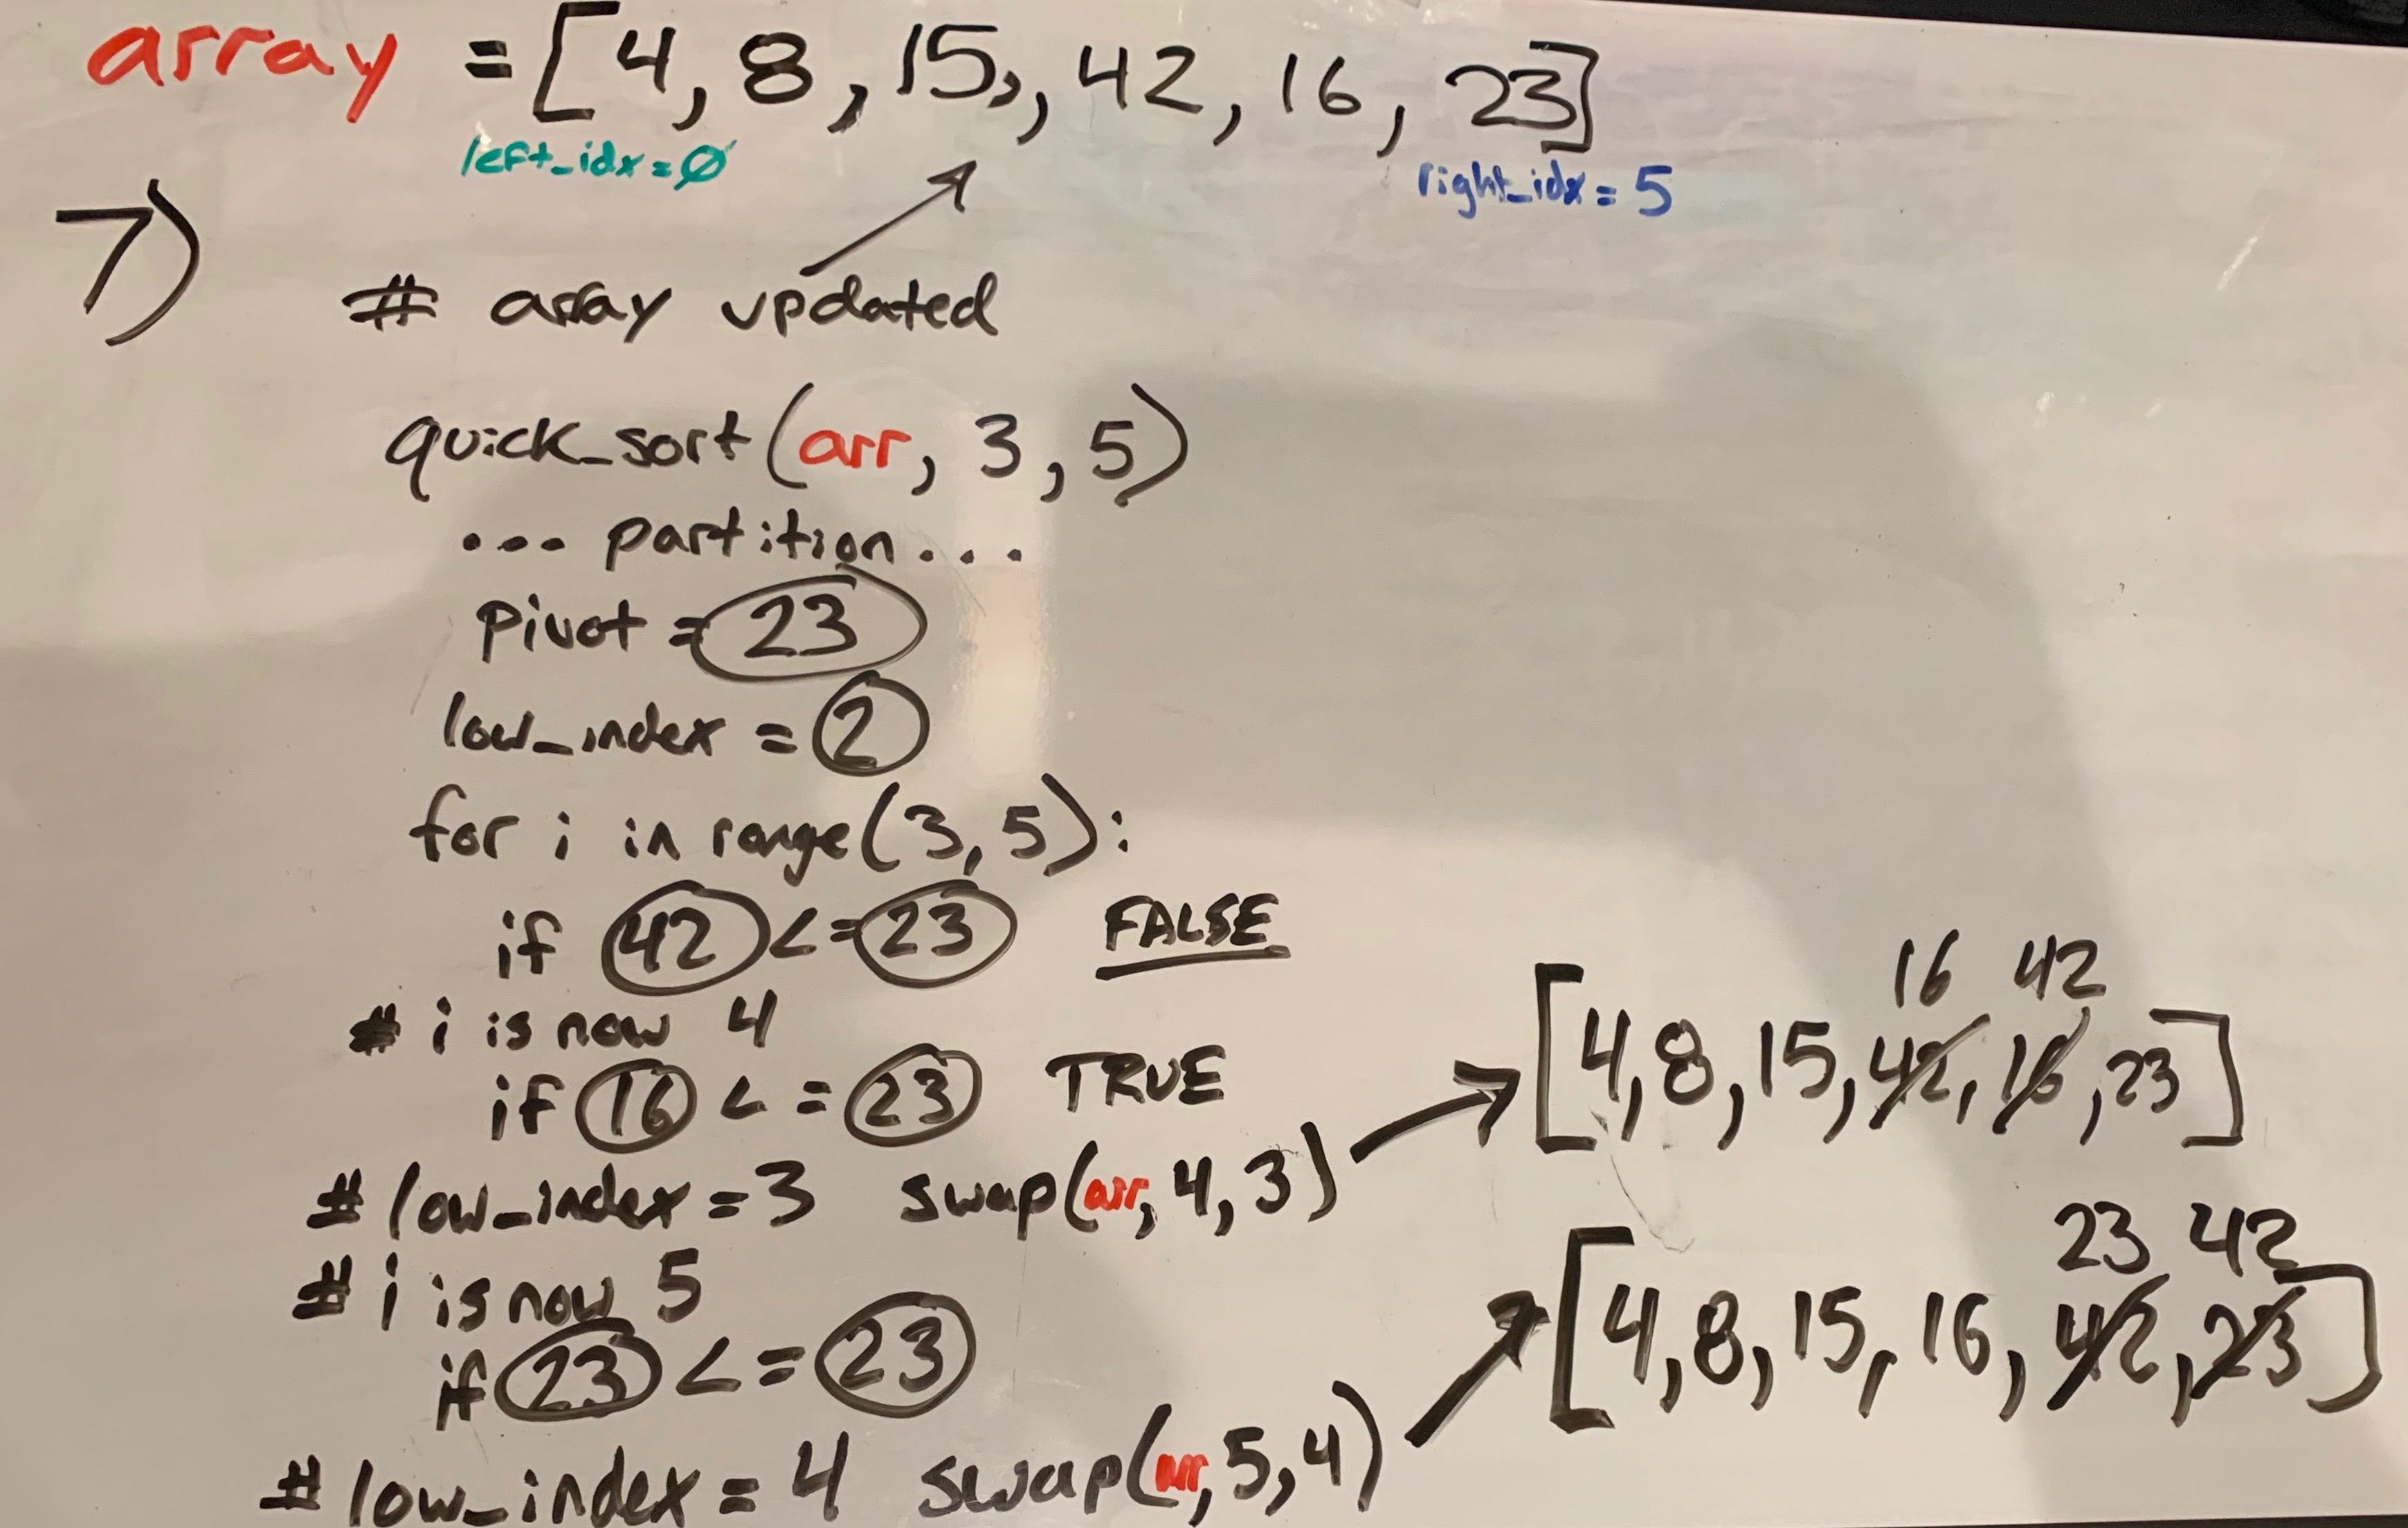 array = [4, 8, 15,, 42, 16, 23]
left_idx = Ø
right_idx = 5
7)
# array updated
quick_sort(arr, 3, 5)
... partition...
pivot = 23
low_index = 2
for i in range(3, 5):
if 42 <= 23 FALSE
# i is now 4
if 16 <= 23 TRUE
# low_index = 3 swap(arr, 4, 3)
16 42
[4, 8, 15, 42, 16, 23]
# i is now 5
if 23 <= 23
# low_index = 4 swap(arr, 5, 4)
23 42
[4, 8, 15, 16, 42, 23]